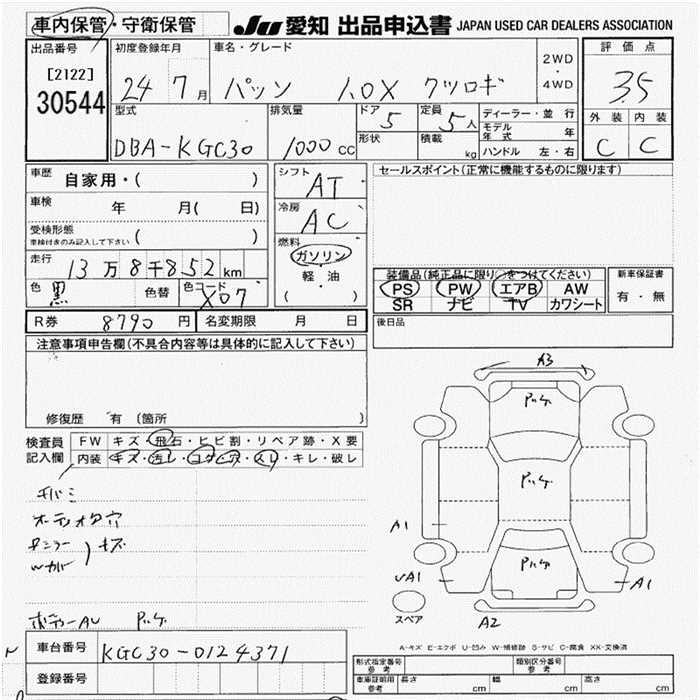 車内保管・守衛保管
JU 愛知 出品申込書 JAPAN USED CAR DEALERS ASSOCIATION
出品番号
[2122]
30544
初度登録年月
24 7月
車名・グレード
パッソ ハロX クツロギ
2WD
・
4WD
評価点
3.5
外装 内装
C C
型式
DBA-KGC30
排気量
1000 cc
ドア 5
形状
定員 5人
積載 kg
ディーラー・並行
モデル年式 年
ハンドル 左・右
車歴 自家用・( )
車検 年 月( 日)
受検形態
車検付きのみ記入して下さい ( )
走行 13万8千852km
色 黒 色替 色コード X07
シフト AT
冷房 AC
燃料
ガソリン
軽・油
( )
セールスポイント(正常に機能するものに限ります)
装備品(純正品に限り○をつけてください)
PS PW エアB AW
SR ナビ TV カワシート
新車保証書
有・無
R券 8790円 名変期限 月 日
後日品
注意事項申告欄(不具合内容等は具体的に記入して下さい)
修復歴 有〔箇所 〕
検査員記入欄
FW キズ・飛石・ヒビ割・リペア跡・X要
内装 キズ・汚レ・コゲ・穴・スレ・キレ・破レ
キズ
A3
A1
UA1
A1
A2
スペア
A-キズ E-エクボ U-凹み W-補修跡 S-サビ C-腐食 XX-交換済
車台番号 KGC30-0124371
登録番号
形式指定番号 参考
類別区分番号 参考
車庫証明用 参考 長さ cm 幅 cm 高さ cm